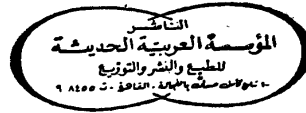 الناشر
المؤسسة العربية الحديثة
للطبع والنشر والتوزيع
شارع كامل صدقى بالفجالة . القاهرة . ت ٩٠٨٤٥٥